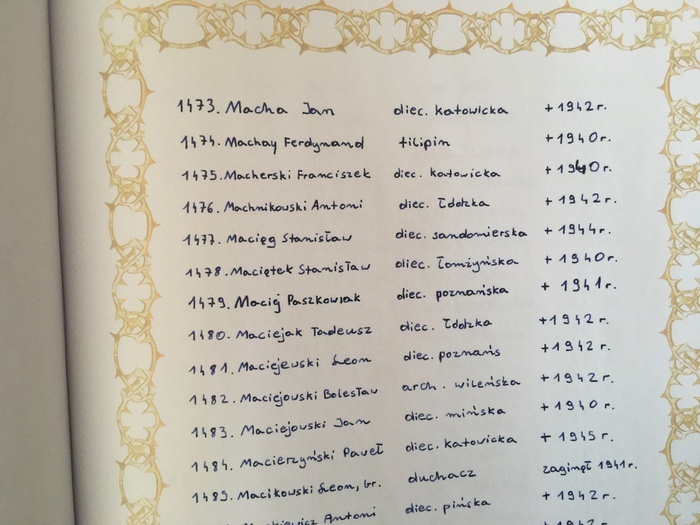 1473. Macha Jan diec. katowicka + 1942 r.
1474. Machay Ferdynand filipin + 1940 r.
1475. Macherski Franciszek diec. katowicka + 1940 r.
1476. Machnikowski Antoni diec. łódzka + 1942 r.
1477. Macięg Stanisław diec. sandomierska + 1944 r.
1478. Maciętek Stanisław diec. łomżyńska + 1940 r.
1479. Maciej Paszkowiak diec. poznańska + 1941 r.
1480. Maciejak Tadeusz diec. łódzka + 1942 r.
1481. Maciejewski Leon diec. poznańs + 1942 r.
1482. Maciejowski Bolesław arch. wileńska + 1942 r.
1483. Maciejowski Jan diec. mińska + 1940 r.
1484. Macierzyński Paweł diec. katowicka + 1945 r.
1485. Macikowski Leon, br. duchacz zaginął 1941 r.
Antoni diec. pińska + 1942 r.